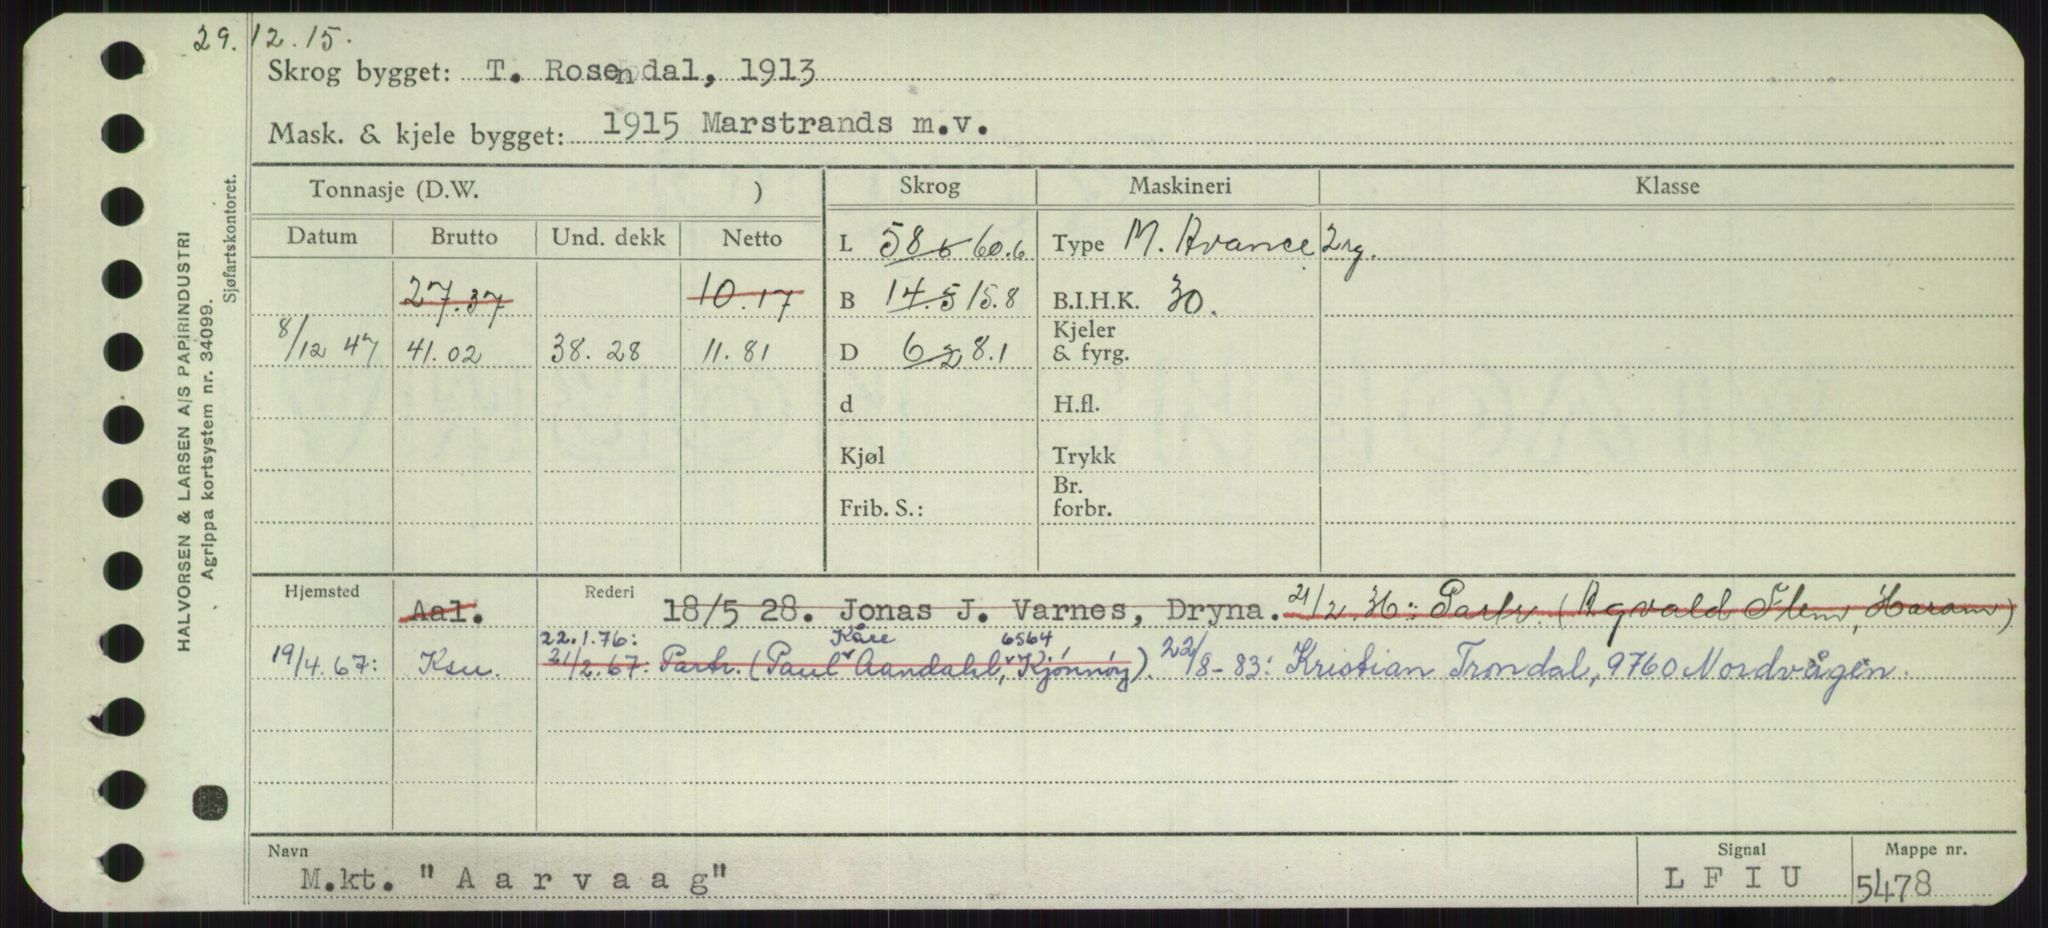 29.12.15.
Skrog bygget: T. Rosendal, 1913
Mask. & kjele bygget: 1915 Marstrands m.v.
Tonnasje (D.W. ) Skrog Maskineri Klasse
Datum Brutto Und. dekk Netto L 58.6 60.6 Type M. Avance 2 sy.
27.37 10.17 B 14.5 15.8 B.I.H.K. 30.
8/12 47 41.02 38.28 11.81 D 6.2 8.1 Kjeler & fyrg.
d H.fl.
Kjøl Trykk
Frib. S.: Br. forbr.
Hjemsted Aal. Rederi 18/5 28. Jonas J. Varnes, Dryna. 21/2.36: Partr. (Agvald Flem, Haram)
22.1.76: Kåre 6564
19/4.67: Ksu. 21/2.67: Partr. (Paul Aandahl, Kjönnöy). 22/8-83: Kristian Trondal, 9760 Nordvågen.
Navn Signal Mappe nr.
M.kt. "Aarvaag" LFIU 5478
HALVORSEN & LARSEN A/S PAPIRINDUSTRI
Agrippa kortsystem nr. 34099.
Sjøfartskontoret.